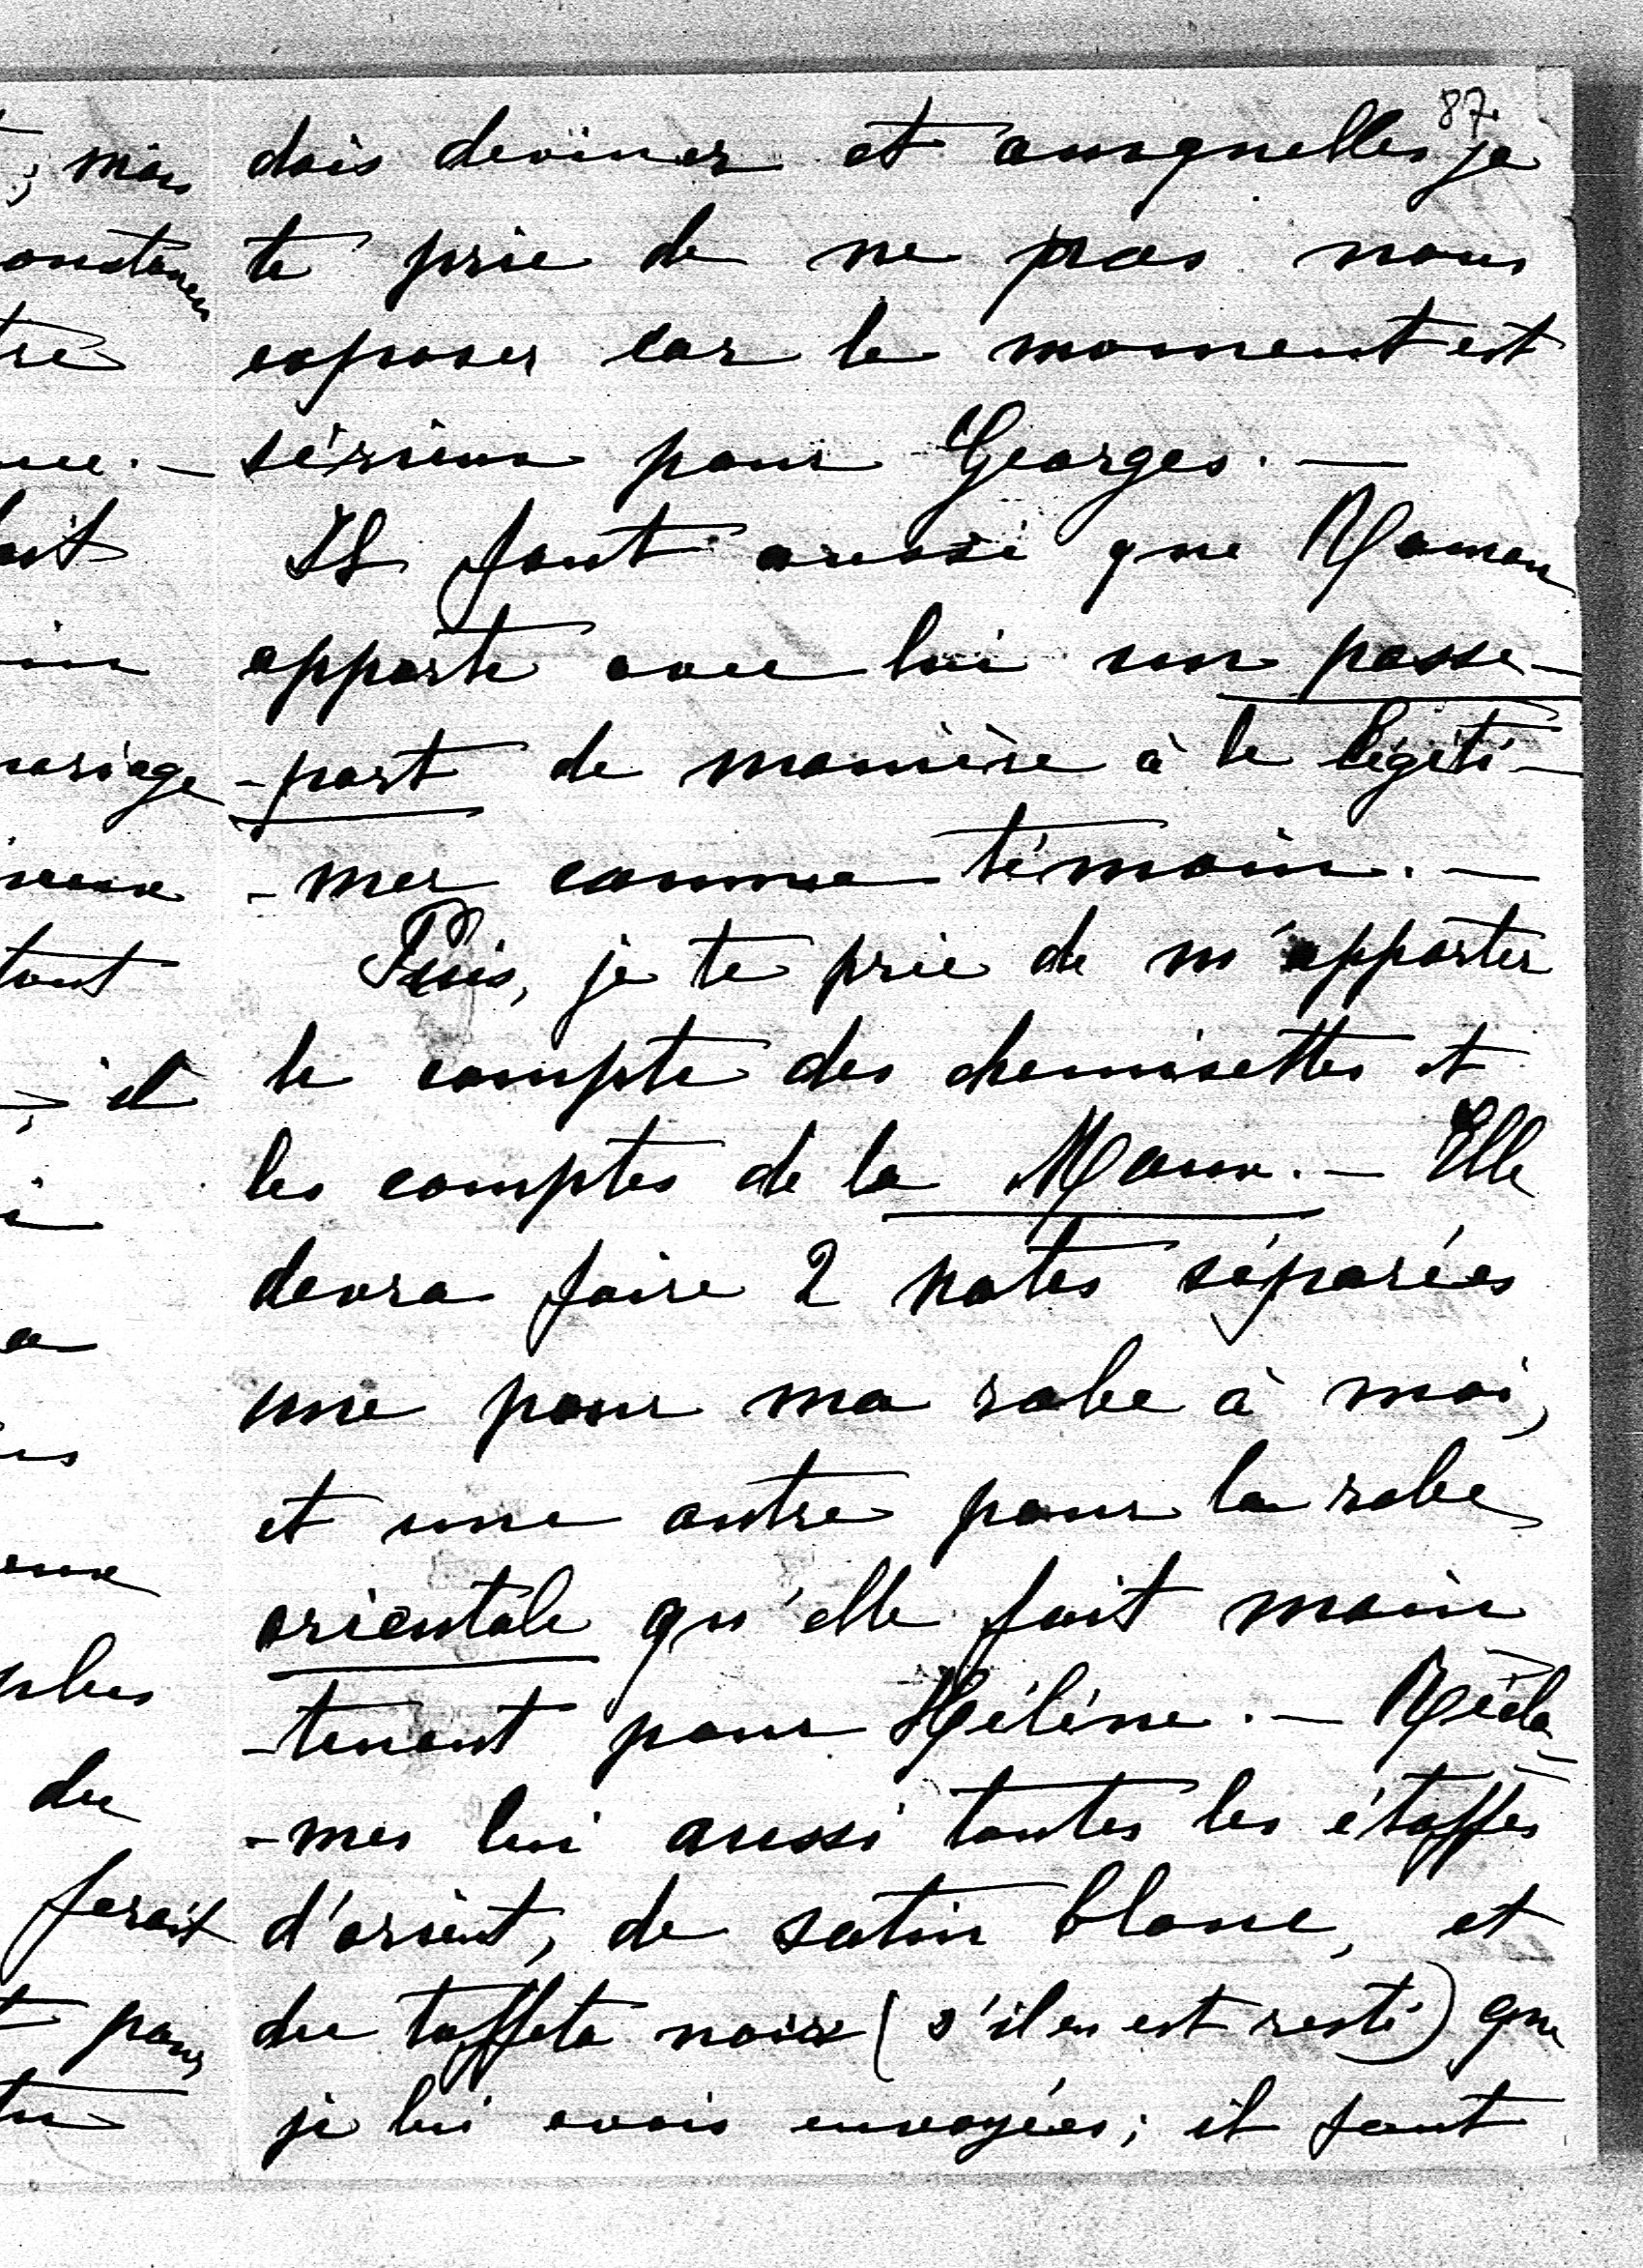 87.
dois deviner et auxquelles je
te prie de ne pas nous
exposer car le moment est
sérieux pour Georges. —
Il faut aussi que Roman
apporte avec lui un passe-
-port de manière à le légiti-
-mer comme témoin. —
Puis, je te prie de m'apporter
le compte des chemisettes et
les comptes de la Maux. — Elle
devra faire 2 notes séparées
une pour ma robe à moi,
et une autre pour la robe
orientale qu'elle fait main
-tenant pour Hélène. — Récla-
-mes lui aussi toutes les étoffes
d'orient, de satin blanc, et
du taffeta noir (s'il en est resté) que
je lui avais envoyées; il faut
; mais
mariage
tout
; il
du
ferait